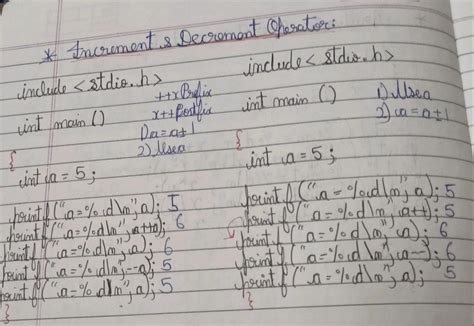 * Increment & Decrement Operator:
include <stdio.h>
++x Prefix
x++ Postfix
int main ()
1) a = a±1
2) Use a
{
int a = 5;
printf ("a = %d\n", a); 5
printf ("a = %d\n", ++a); 6
printf ("a = %d\n", a); 6
printf ("a = %d\n", --a); 5
printf ("a = %d\n", a); 5
}
include < stdio.h>
int main ()
1) Use a
2) a = a±1
{
int a = 5;
printf ("a = %d\n", a); 5
printf ("a = %d\n", a++); 5
printf ("a = %d\n", a); 6
printf ("a = %d\n", a--); 6
printf ("a = %d\n", a); 5
}